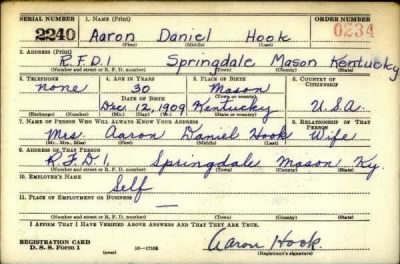 SERIAL NUMBER 1. NAME (Print) ORDER NUMBER
2240 Aaron Daniel Hook 0234
(First) (Middle) (Last)
2. ADDRESS (Print)
R.F.D.1 Springdale Mason Kentucky
(Number and street or R. F. D. number) (Town) (County) (State)
3. TELEPHONE 4. AGE IN YEARS 5. PLACE OF BIRTH 6. COUNTRY OF CITIZENSHIP
none 30 Mason
DATE OF BIRTH (Town or county)
Dec 12, 1909 Kentucky U.S.A.
(Exchange) (Number) (Mo.) (Day) (Yr.) (State or country)
7. NAME OF PERSON WHO WILL ALWAYS KNOW YOUR ADDRESS 8. RELATIONSHIP OF THAT PERSON
Mrs. Aaron Daniel Hook Wife
(Mr., Mrs., Miss) (First) (Middle) (Last)
9. ADDRESS OF THAT PERSON
R.F.D 1. Springdale Mason Ky.
(Number and street or R. F. D. number) (Town) (County) (State)
10. EMPLOYER'S NAME
Self
11. PLACE OF EMPLOYMENT OR BUSINESS
—
(Number and street or R. F. D. number) (Town) (County) (State)
I AFFIRM THAT I HAVE VERIFIED ABOVE ANSWERS AND THAT THEY ARE TRUE.
REGISTRATION CARD
D. S. S. Form 1 16—17105 Aaron Hook
(Registrant's signature)